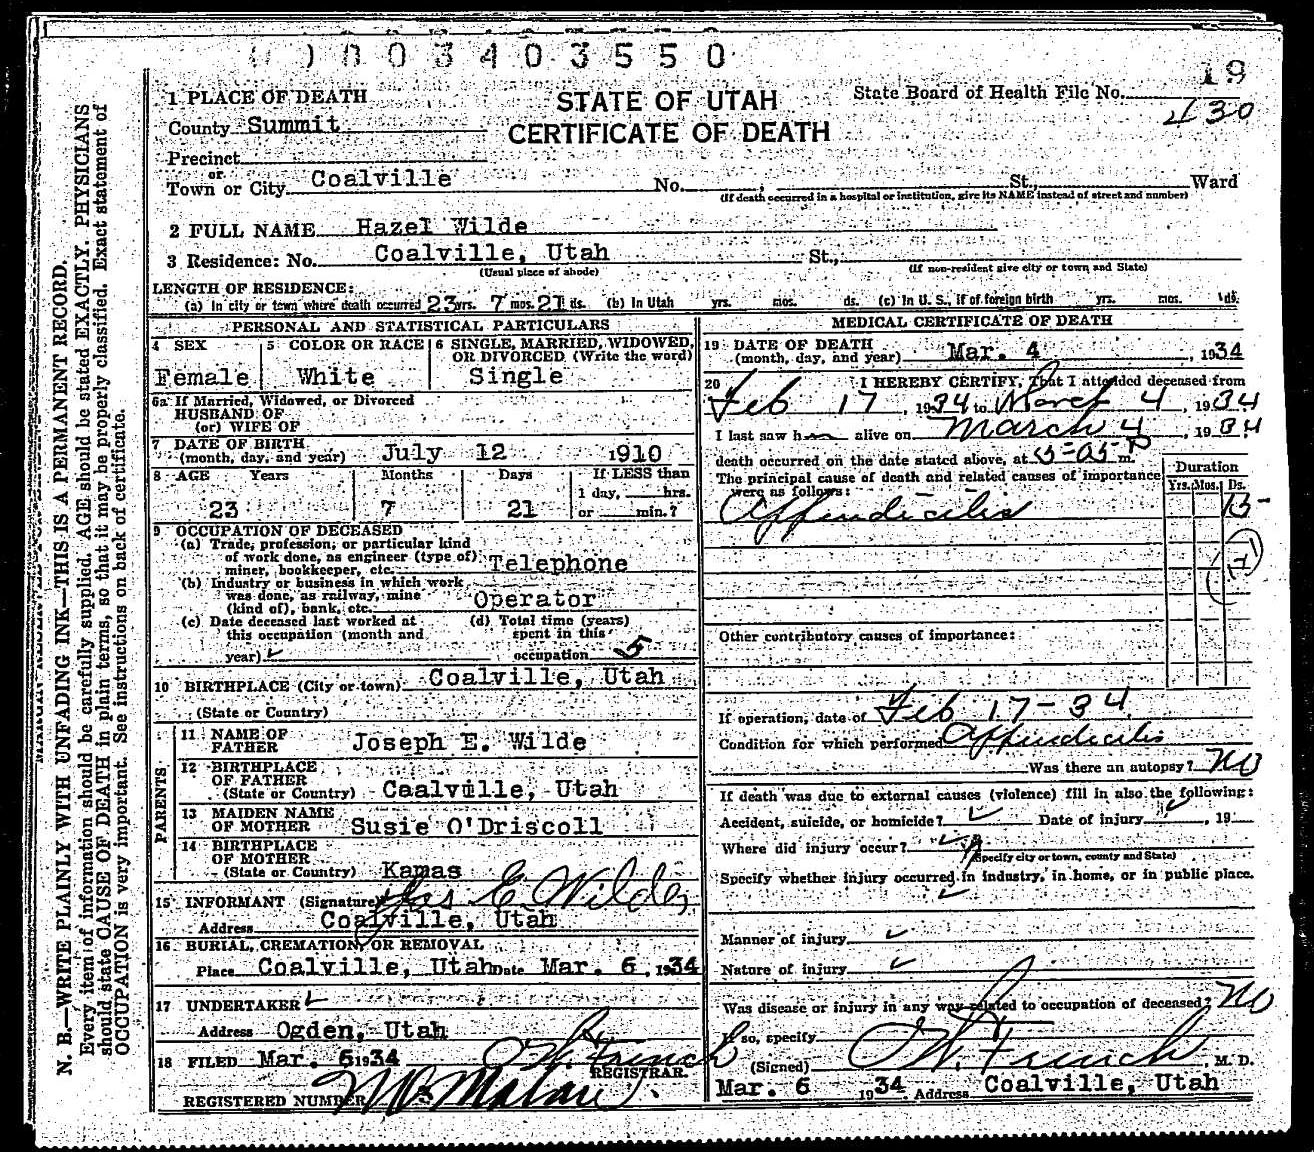 0003403550
19
1 PLACE OF DEATH
STATE OF UTAH
CERTIFICATE OF DEATH
State Board of Health File No.
430
County Summit
Precinct
or
Town or City Coalville No. , St., Ward
(If death occurred in a hospital or institution, give its NAME instead of street and number)
2 FULL NAME Hazel Wilde
3 Residence: No. Coalville, Utah St.,
(Usual place of abode) (If non-resident give city or town and State)
LENGTH OF RESIDENCE:
(a) In city or town where death occurred 23 yrs. 7 mos. 21 ds. (b) In Utah yrs. mos. ds. (c) In U. S., if of foreign birth yrs. mos. ds.
PERSONAL AND STATISTICAL PARTICULARS
4 SEX 5 COLOR OR RACE 6 SINGLE, MARRIED, WIDOWED, OR DIVORCED (Write the word)
Female White Single
6a If Married, Widowed, or Divorced
HUSBAND OF
(or) WIFE OF
7 DATE OF BIRTH
(month, day, and year) July 12 1910
8 AGE Years Months Days If LESS than
1 day, hrs.
23 7 21 or min.?
9 OCCUPATION OF DECEASED
(a) Trade, profession, or particular kind
of work done, as engineer (type of)
miner, bookkeeper, etc. Telephone
(b) Industry or business in which work
was done, as railway, mine
(kind of), bank, etc. Operator
(c) Date deceased last worked at
this occupation (month and
year)
(d) Total time (years)
spent in this
occupation 5
10 BIRTHPLACE (City or town) Coalville, Utah
(State or Country)
PARENTS
11 NAME OF
FATHER Joseph E. Wilde
12 BIRTHPLACE
OF FATHER
(State or Country) Coalville, Utah
13 MAIDEN NAME
OF MOTHER Susie O'Driscoll
14 BIRTHPLACE
OF MOTHER
(State or Country) Kamas
15 INFORMANT (Signature) Jos E Wilde
Address Coalville, Utah
16 BURIAL, CREMATION, OR REMOVAL
Place Coalville, Utah Date Mar. 6, 1934
17 UNDERTAKER
Address Ogden, Utah
18 FILED Mar. 6 1934
REGISTRAR.
REGISTERED NUMBER
MEDICAL CERTIFICATE OF DEATH
19 DATE OF DEATH
(month, day, and year) Mar. 4, 1934
20 I HEREBY CERTIFY, That I attended deceased from
Feb 17, 1934 to March 4, 1934
I last saw h alive on March 4, 1934
death occurred on the date stated above, at 5-05 P m.
The principal cause of death and related causes of importance
were as follows:
Duration
Yrs. Mos. Ds.
Appendicitis 15
Other contributory causes of importance:
If operation, date of Feb 17-34
Condition for which performed Appendicitis
Was there an autopsy? No
If death was due to external causes (violence) fill in also the following:
Accident, suicide, or homicide? Date of injury , 19
Where did injury occur?
(Specify city or town, county and State)
Specify whether injury occurred in industry, in home, or in public place.
Manner of injury
Nature of injury
Was disease or injury in any way related to occupation of deceased? No
If so, specify
(Signed) French M. D.
Mar. 6 1934 Address Coalville, Utah
N. B.—WRITE PLAINLY WITH UNFADING INK—THIS IS A PERMANENT RECORD.
Every item of information should be carefully supplied. AGE should be stated EXACTLY. PHYSICIANS
should state CAUSE OF DEATH in plain terms, so that it may be properly classified. Exact statement of
OCCUPATION is very important. See instructions on back of certificate.